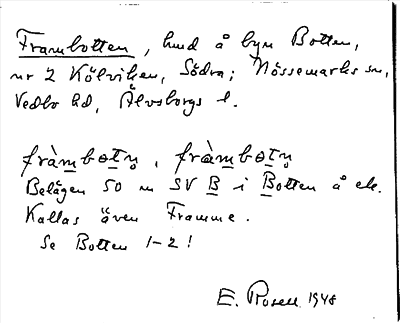 Frambotten, hmd å byn Botten,
nr 2 Kölviken, Södra; Nössemarks sn,
Vedbo hd, Älvsborgs l.
fràmbɵtn̥, fràmbɵtn̥
Belägen 50 m SV B i Botten å ek.
Kallas även Framme.
Se Botten 1-2!
E. Rosell 1948